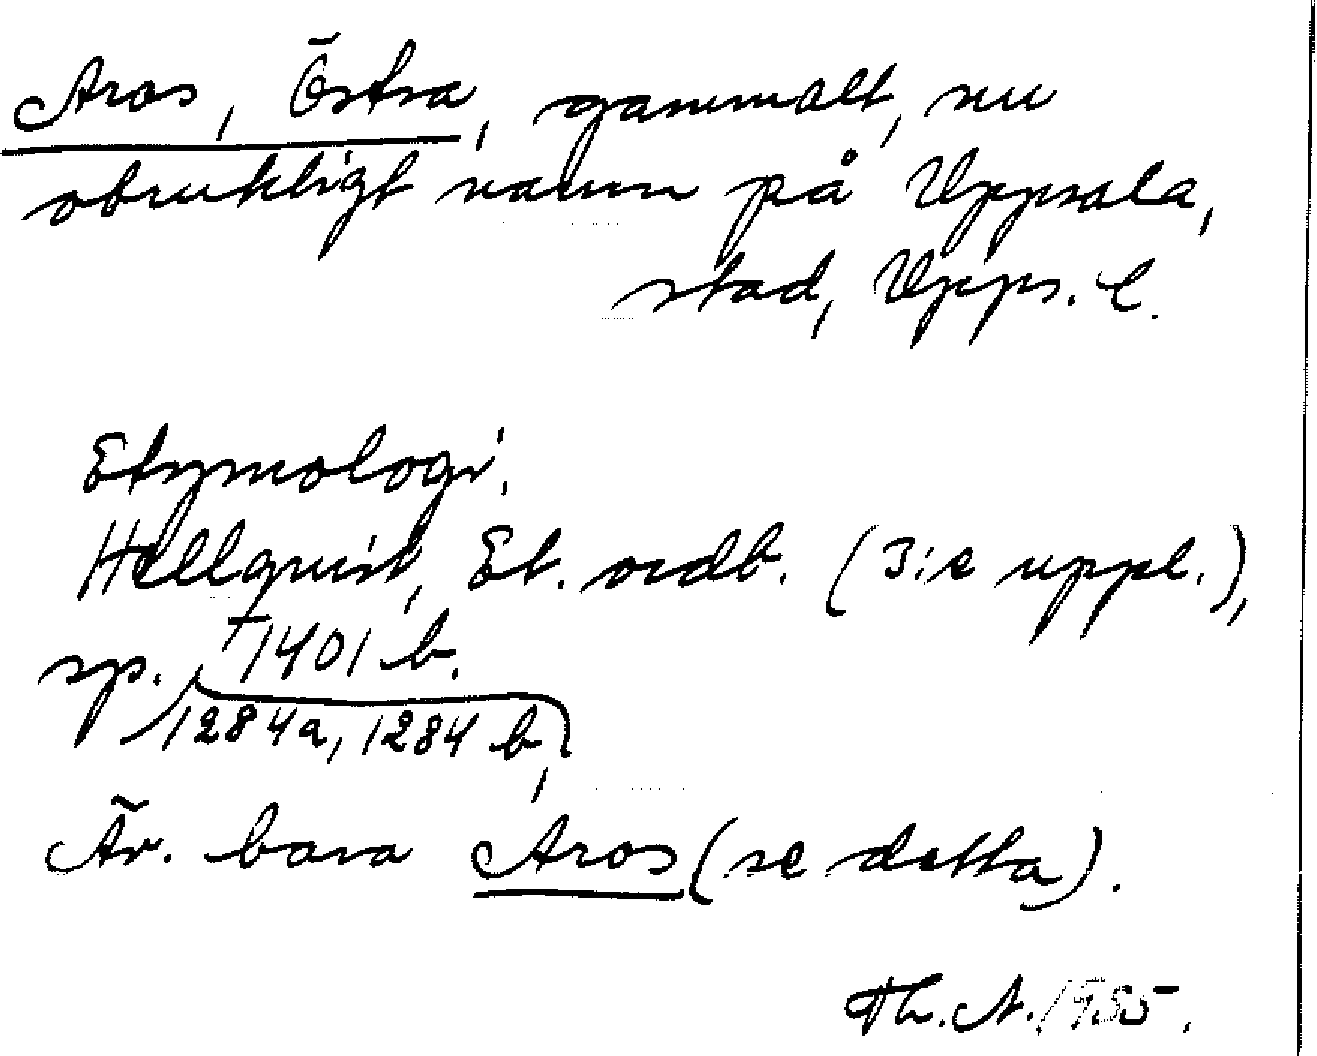 Aros, Östra, gammalt, nu
obrukligt namn på Uppsala,
stad, Upps. l.
Etymologi.
Hellquist, Et. ordb. (3:e uppl.),
sp. 1401 b.
1284a, 1284 b,
Äv. bara Aros (se detta).
Th. A. 1985.